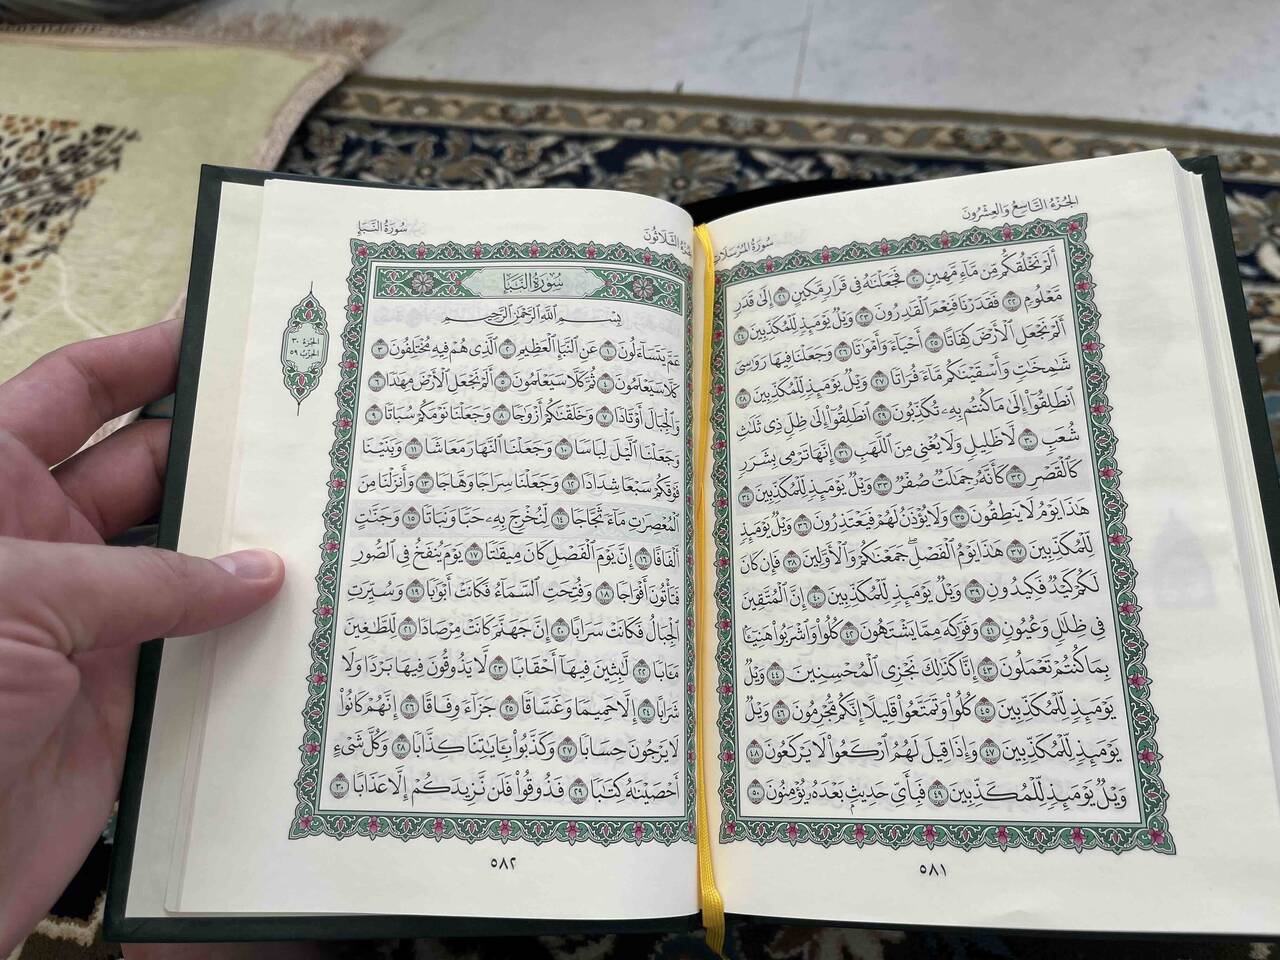 الجُزْءُ التَّاسِعُ وَالعِشْرُونَ
سُورَةُ المُرْسَلَات
أَلَمْ نَخْلُقكُّم مِّن مَّآءٖ مَّهِينٖ ٢٠ فَجَعَلْنَٰهُ فِي قَرَارٖ مَّكِينٍ ٢١ إِلَىٰ قَدَرٖ
مَّعْلُومٖ ٢٢ فَقَدَرْنَا فَنِعْمَ ٱلْقَٰدِرُونَ ٢٣ وَيْلٌ يَوْمَئِذٖ لِّلْمُكَذِّبِينَ ٢٤
أَلَمْ نَجْعَلِ ٱلْأَرْضَ كِفَاتًا ٢٥ أَحْيَآءٗ وَأَمْوَٰتٗا ٢٦ وَجَعَلْنَا فِيهَا رَوَٰسِيَ
شَٰمِخَٰتٖ وَأَسْقَيْنَٰكُم مَّآءٗ فُرَاتٗا ٢٧ وَيْلٌ يَوْمَئِذٖ لِّلْمُكَذِّبِينَ ٢٨
ٱنطَلِقُوٓا۟ إِلَىٰ مَا كُنتُم بِهِۦ تُكَذِّبُونَ ٢٩ ٱنطَلِقُوٓا۟ إِلَىٰ ظِلّٖ ذِي ثَلَٰثِ
شُعَبٖ ٣٠ لَّا ظَلِيلٖ وَلَا يُغْنِي مِنَ ٱللَّهَبِ ٣١ إِنَّهَا تَرْمِي بِشَرَرٖ
كَٱلْقَصْرِ ٣٢ كَأَنَّهُۥ جِمَٰلَتٞ صُفْرٞ ٣٣ وَيْلٌ يَوْمَئِذٖ لِّلْمُكَذِّبِينَ ٣٤
هَٰذَا يَوْمُ لَا يَنطِقُونَ ٣٥ وَلَا يُؤْذَنُ لَهُمْ فَيَعْتَذِرُونَ ٣٦ وَيْلٌ يَوْمَئِذٖ
لِّلْمُكَذِّبِينَ ٣٧ هَٰذَا يَوْمُ ٱلْفَصْلِۖ جَمَعْنَٰكُمْ وَٱلْأَوَّلِينَ ٣٨ فَإِن كَانَ
لَكُمْ كَيْدٞ فَكِيدُونِ ٣٩ وَيْلٌ يَوْمَئِذٖ لِّلْمُكَذِّبِينَ ٤٠ إِنَّ ٱلْمُتَّقِينَ
فِي ظِلَٰلٖ وَعُيُونٖ ٤١ وَفَوَٰكِهَ مِمَّا يَشْتَهُونَ ٤٢ كُلُوا۟ وَٱشْرَبُوا۟ هَنِيٓـَٔۢا
بِمَا كُنتُمْ تَعْمَلُونَ ٤٣ إِنَّا كَذَٰلِكَ نَجْزِي ٱلْمُحْسِنِينَ ٤٤ وَيْلٌ
يَوْمَئِذٖ لِّلْمُكَذِّبِينَ ٤٥ كُلُوا۟ وَتَمَتَّعُوا۟ قَلِيلًا إِنَّكُم مُّجْرِمُونَ ٤٦ وَيْلٌ
يَوْمَئِذٖ لِّلْمُكَذِّبِينَ ٤٧ وَإِذَا قِيلَ لَهُمُ ٱرْكَعُوا۟ لَا يَرْكَعُونَ ٤٨
وَيْلٌ يَوْمَئِذٖ لِّلْمُكَذِّبِينَ ٤٩ فَبِأَيِّ حَدِيثِۭ بَعْدَهُۥ يُؤْمِنُونَ ٥٠
٥٨١
الثَّلَاثُونَ
سُورَةُ النَّبَإِ
سُورَةُ النَّبَإِ
بِسْمِ ٱللَّهِ ٱلرَّحْمَٰنِ ٱلرَّحِيمِ
عَمَّ يَتَسَآءَلُونَ ١ عَنِ ٱلنَّبَإِ ٱلْعَظِيمِ ٢ ٱلَّذِي هُمْ فِيهِ مُخْتَلِفُونَ ٣
كَلَّا سَيَعْلَمُونَ ٤ ثُمَّ كَلَّا سَيَعْلَمُونَ ٥ أَلَمْ نَجْعَلِ ٱلْأَرْضَ مِهَٰدٗا ٦
وَٱلْجِبَالَ أَوْتَادٗا ٧ وَخَلَقْنَٰكُمْ أَزْوَٰجٗا ٨ وَجَعَلْنَا نَوْمَكُمْ سُبَاتٗا ٩
وَجَعَلْنَا ٱلَّيْلَ لِبَاسٗا ١٠ وَجَعَلْنَا ٱلنَّهَارَ مَعَاشٗا ١١ وَبَنَيْنَا
فَوْقَكُمْ سَبْعٗا شِدَادٗا ١٢ وَجَعَلْنَا سِرَاجٗا وَهَّاجٗا ١٣ وَأَنزَلْنَا مِنَ
ٱلْمُعْصِرَٰتِ مَآءٗ ثَجَّاجٗا ١٤ لِّنُخْرِجَ بِهِۦ حَبّٗا وَنَبَاتٗا ١٥ وَجَنَّٰتٍ
أَلْفَافًا ١٦ إِنَّ يَوْمَ ٱلْفَصْلِ كَانَ مِيقَٰتٗا ١٧ يَوْمَ يُنفَخُ فِي ٱلصُّورِ
فَتَأْتُونَ أَفْوَاجٗا ١٨ وَفُتِحَتِ ٱلسَّمَآءُ فَكَانَتْ أَبْوَٰبٗا ١٩ وَسُيِّرَتِ
ٱلْجِبَالُ فَكَانَتْ سَرَابًا ٢٠ إِنَّ جَهَنَّمَ كَانَتْ مِرْصَادٗا ٢١ لِّلطَّٰغِينَ
مَـَٔابٗا ٢٢ لَّٰبِثِينَ فِيهَآ أَحْقَابٗا ٢٣ لَّا يَذُوقُونَ فِيهَا بَرْدٗا وَلَا
شَرَابًا ٢٤ إِلَّا حَمِيمٗا وَغَسَّاقٗا ٢٥ جَزَآءٗ وِفَاقًا ٢٦ إِنَّهُمْ كَانُوا۟
لَا يَرْجُونَ حِسَابٗا ٢٧ وَكَذَّبُوا۟ بِـَٔايَٰتِنَا كِذَّابٗا ٢٨ وَكُلَّ شَيْءٍ
أَحْصَيْنَٰهُ كِتَٰبٗا ٢٩ فَذُوقُوا۟ فَلَن نَّزِيدَكُمْ إِلَّا عَذَابًا ٣٠
الجزء ٣٠
الحزب ٥٩
٥٨٢